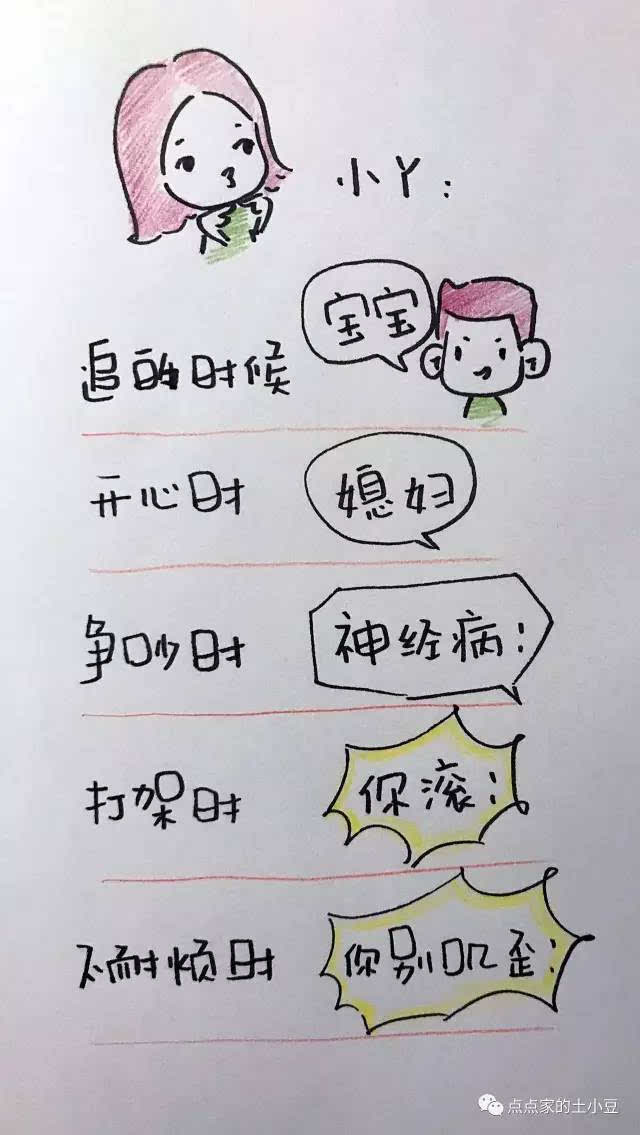 小丫:
追的时候 宝宝
开心时 媳妇
争吵时 神经病!
打架时 你滚!
不耐烦时 你别叽歪!
点点家的土小豆